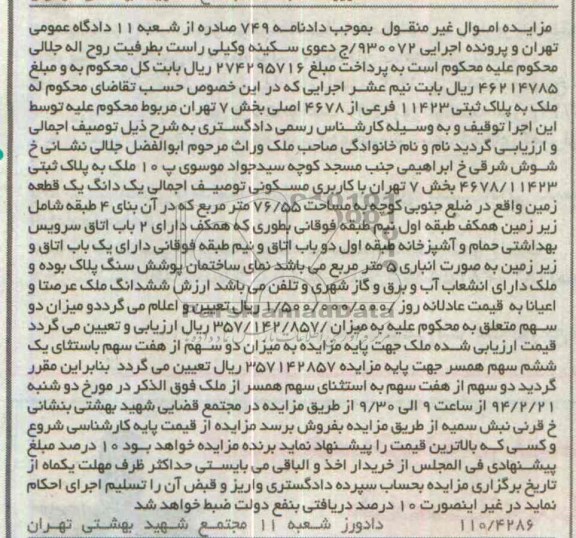 مزایده اموال غیر منقول بموجب دادنامه ۷۴۹ صادره از شعبه ۱۱ دادگاه عمومی
تهران و پرونده اجرایی ۹۳۰۰۷۲/ج دعوی سکینه وکیلی راست بطرفیت روح اله جلالی
محکوم علیه محکوم است به پرداخت مبلغ ۲۷۴۲۹۵۷۱۶ ریال بابت کل محکوم به و مبلغ
۴۶۲۱۴۷۸۵ ریال بابت نیم عشر اجرایی که در این خصوص حسب تقاضای محکوم له
ملک به پلاک ثبتی ۱۱۴۲۳ فرعی از ۴۶۷۸ اصلی بخش ۷ تهران مربوط محکوم علیه توسط
این اجرا توقیف و به وسیله کارشناس رسمی دادگستری به شرح ذیل توصیف اجمالی
و ارزیابی گردید نام و نام خانوادگی صاحب ملک وراث مرحوم ابوالفضل جلالی نشانی خ
شوش شرقی خ ابراهیمی جنب مسجد کوچه سیدجواد موسوی پ ۱۰ ملک به پلاک ثبتی
۴۶۷۸/۱۱۴۲۳ بخش ۷ تهران با کاربری مسکونی توصیف اجمالی یک دانگ یک قطعه
زمین واقع در ضلع جنوبی کوچه به مساحت ۷۶/۵۵ متر مربع که در آن بنای ۴ طبقه شامل
زیر زمین همکف طبقه اول نیم طبقه فوقانی بطوری که همکف دارای ۲ باب اتاق سرویس
بهداشتی حمام و آشپزخانه طبقه اول دو باب اتاق و نیم طبقه فوقانی دارای یک باب اتاق و
زیر زمین به صورت انباری ۵ متر مربع می باشد نمای ساختمان پوشش سنگ پلاک بوده و
ملک دارای انشعاب آب و برق و گاز شهری و تلفن می باشد ارزش ششدانگ ملک عرصتا و
اعیانا به قیمت عادلانه روز ۱/۵۰۰/۰۰۰/۰۰۰/ ریال تعیین و اعلام می گرددو میزان دو
سهم متعلق به محکوم علیه به میزان /۳۵۷/۱۴۲/۸۵۷ ریال ارزیابی و تعیین می گردد
قیمت ارزیابی شده ملک جهت پایه مزایده به میزان دو سهم از هفت سهم باستثای یک
ششم سهم همسر جهت پایه مزایده ۳۵۷۱۴۲۸۵۷ ریال تعیین می گردد بنابراین مقرر
گردید دو سهم از هفت سهم به استثنای سهم همسر از ملک فوق الذکر در مورخ دو شنبه
۹۴/۲/۲۱ از ساعت ۹ الی ۹/۳۰ از طریق مزایده در مجتمع قضایی شهید بهشتی بنشانی
خ قرنی نبش سمیه از طریق مزایده بفروش برسد مزایده از قیمت پایه کارشناسی شروع
و کسی که بالاترین قیمت را پیشنهاد نماید برنده مزایده خواهد بود ۱۰ درصد مبلغ
پیشنهادی فی المجلس از خریدار اخذ و الباقی می بایستی حداکثر ظرف مهلت یکماه از
تاریخ برگزاری مزایده بحساب سپرده دادگستری واریز و قبض آن را تسلیم اجرای احکام
نماید در غیر اینصورت ۱۰ درصد دریافتی بنفع دولت ضبط خواهد شد
۱۱۰/۴۲۸۶ دادورز شعبه ۱۱ مجتمع شهید بهشتی تهران